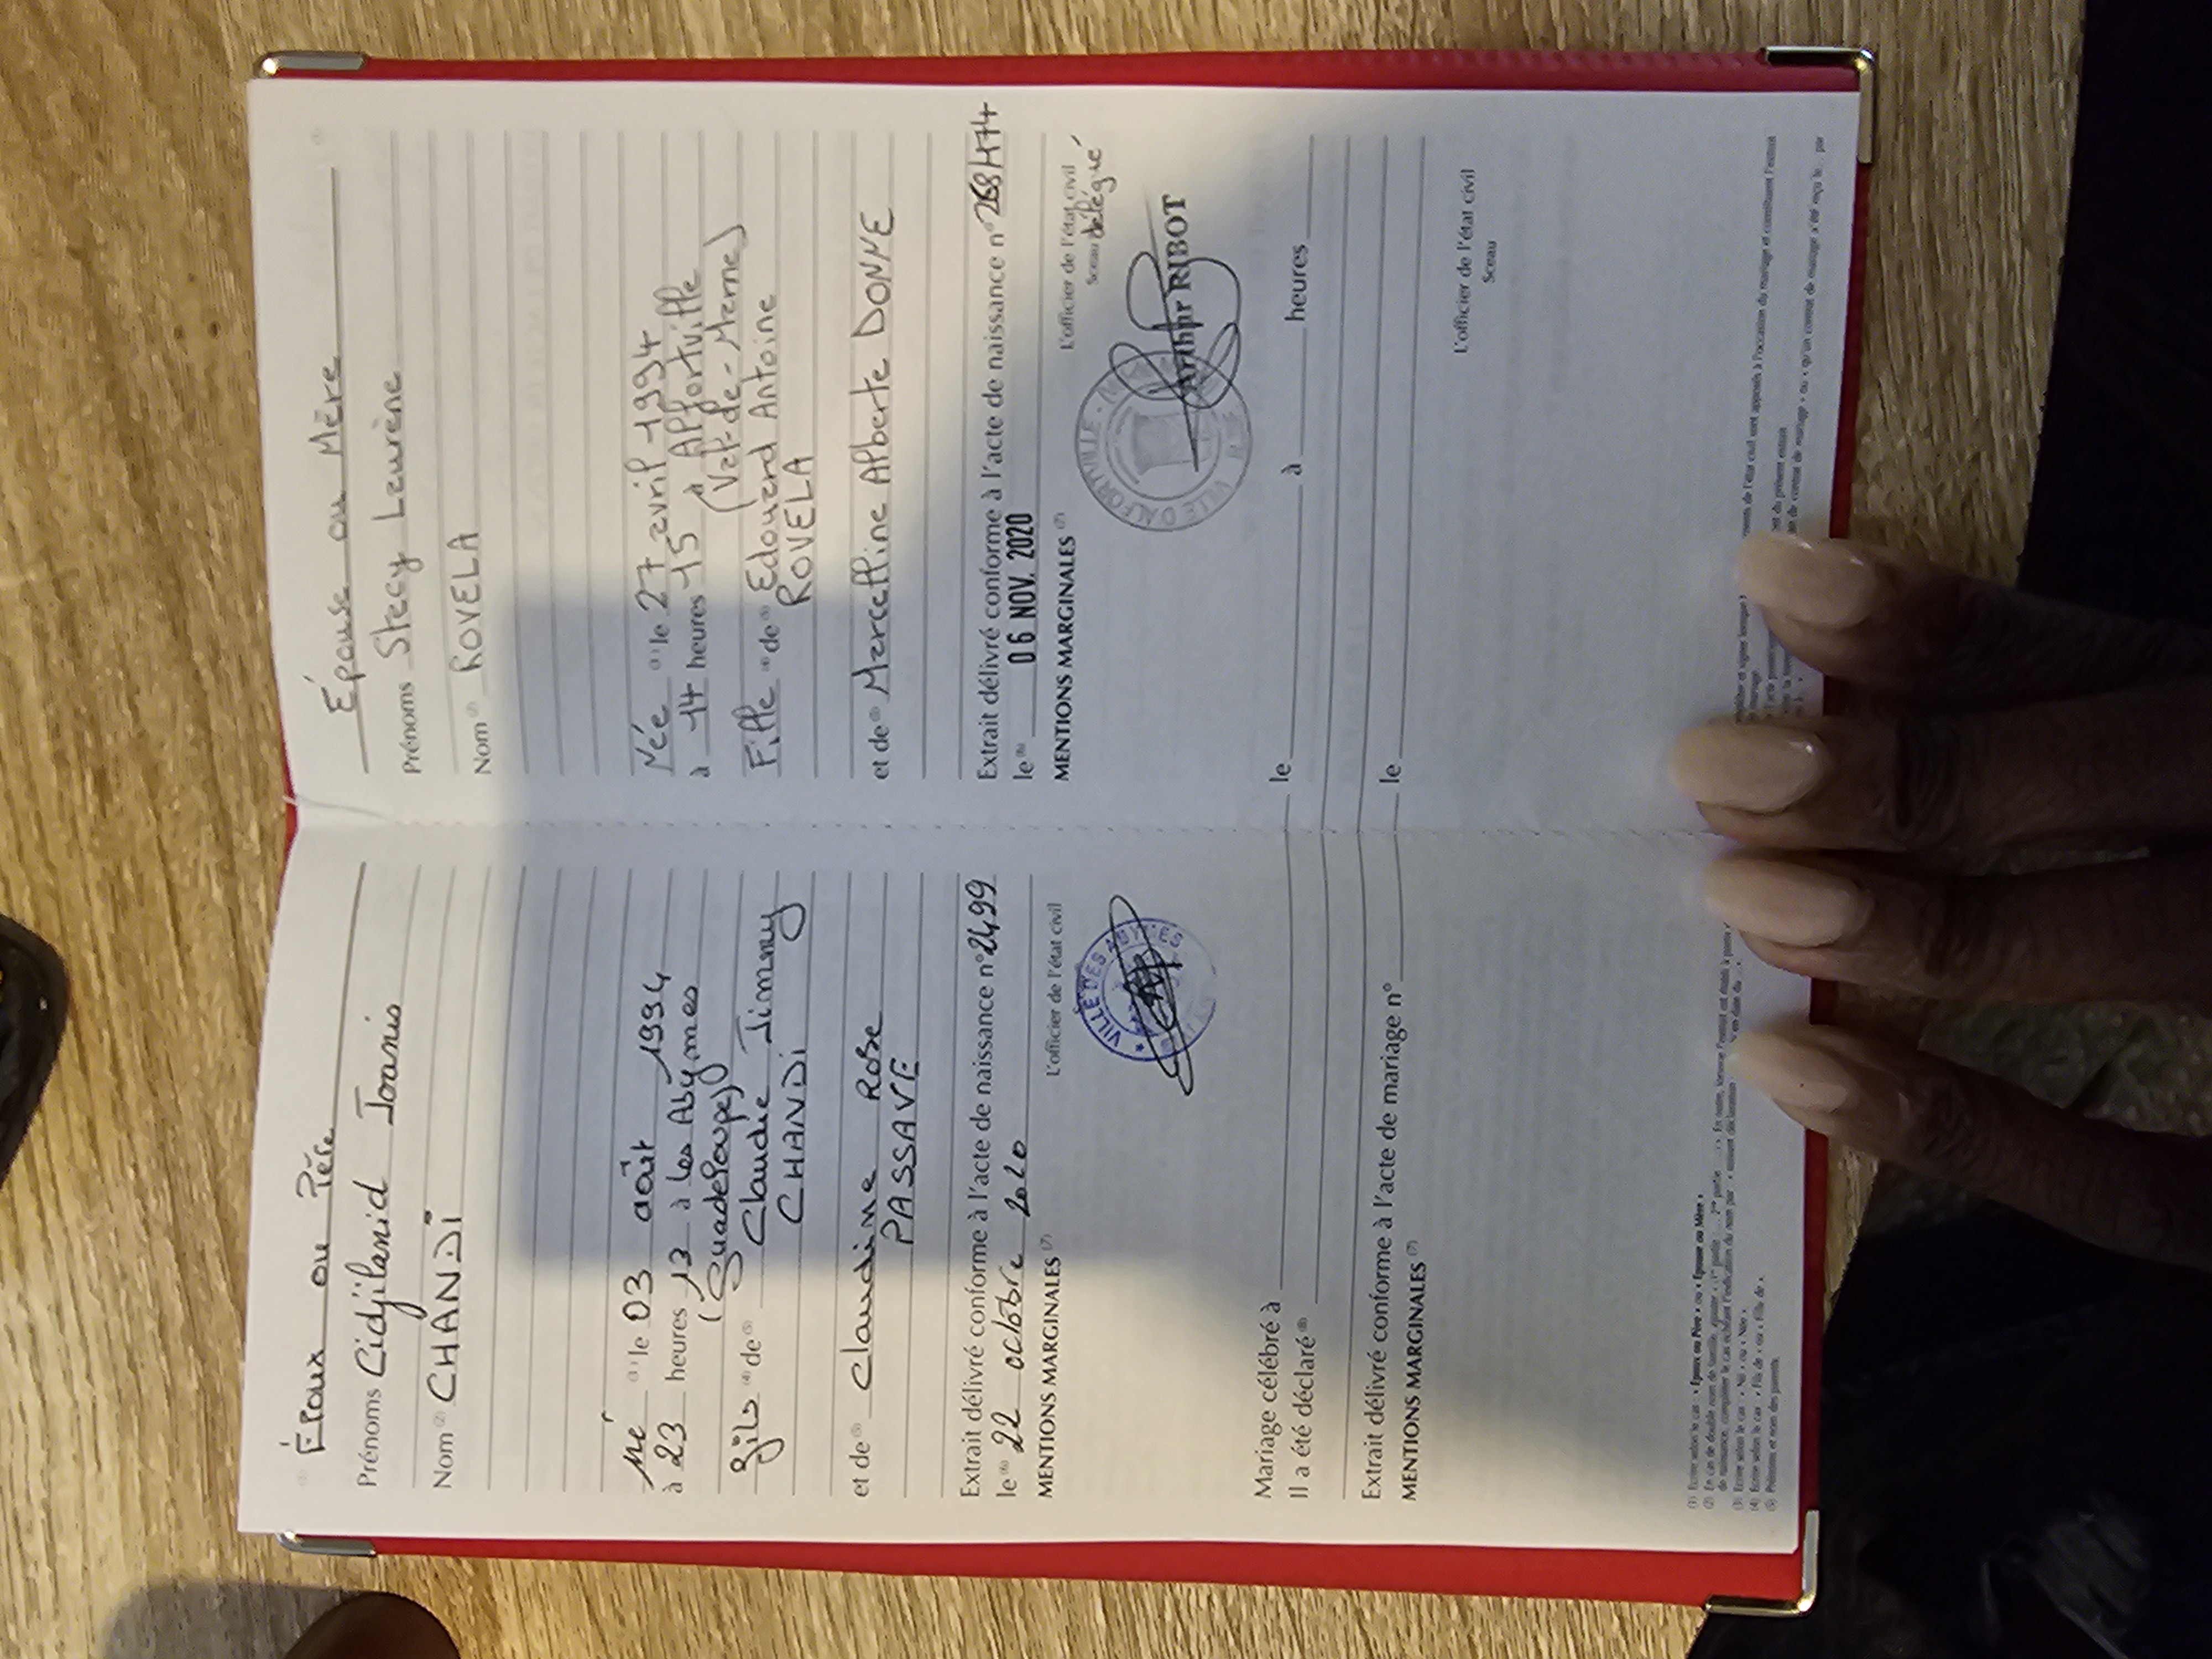 Époux ou Père
Prénoms Cidjilanid Joanis
Nom (2) CHANDI
Né (3) le 03 août 1994
à 23 heures 13 à Les Abymes
(Guadeloupe)
Fils (4) de (5) Claude Jimmy
CHANDI
et de (5) Claudine Rose
PASSAVE
Extrait délivré conforme à l'acte de naissance n° 2499
le (6) 22 octobre 2020
L'officier de l'état civil
MENTIONS MARGINALES (7)
VILLE DES ABYMES
Épouse ou Mère
Prénoms Stecy Laurène
Nom (2) ROVELA
Née (3) le 27 avril 1994
à 14 heures 15 à Alfortville
(Val-de-Marne)
Fille (4) de (5) Edouard Antoine
ROVELA
et de (5) Marcelline Alberte DONNE
Extrait délivré conforme à l'acte de naissance n° 268/474
le (6) 06 NOV. 2020
L'officier de l'état civil
Sceau délégué
MENTIONS MARGINALES (7)
VILLE D'ALFORTVILLE
Arthur RIBOT
Mariage célébré à le à heures
Il a été déclaré (8)
Extrait délivré conforme à l'acte de mariage n° le
MENTIONS MARGINALES (7)
L'officier de l'état civil
Sceau
(1) Ecrire selon le cas « Epoux ou Père » ou « Epouse ou Mère ».
(3) Ecrire selon le cas « Né » ou « Née ».
(4) Ecrire selon le cas « Fils de » ou « Fille de ».
(5) Prénoms et nom des parents.